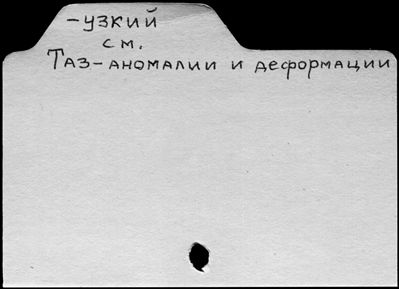 -узкий
см.
Таз-аномалии и деформации